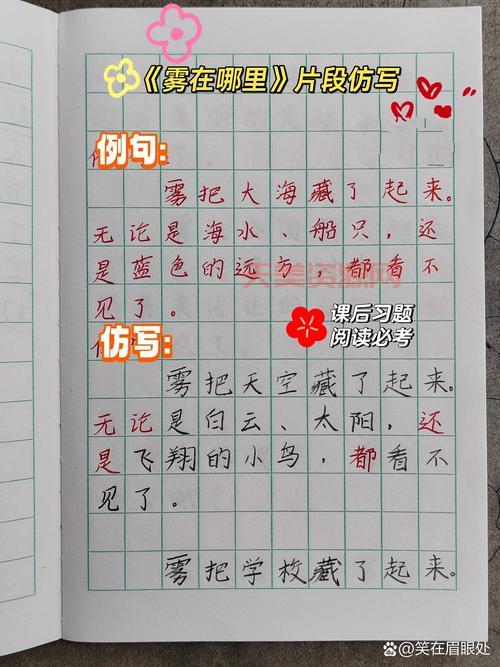 《雾在哪里》片段仿写
例句:
雾把大海藏了起来。
无论是海水、船只,还
是蓝色的远方,都看不
见了。
天美资源网
课后习题
阅读必考
仿写:
雾把天空藏了起来。
无论是白云、太阳,还
是飞翔的小鸟,都看不
见了。
雾把学校藏了起来。
@笑在眉眼处